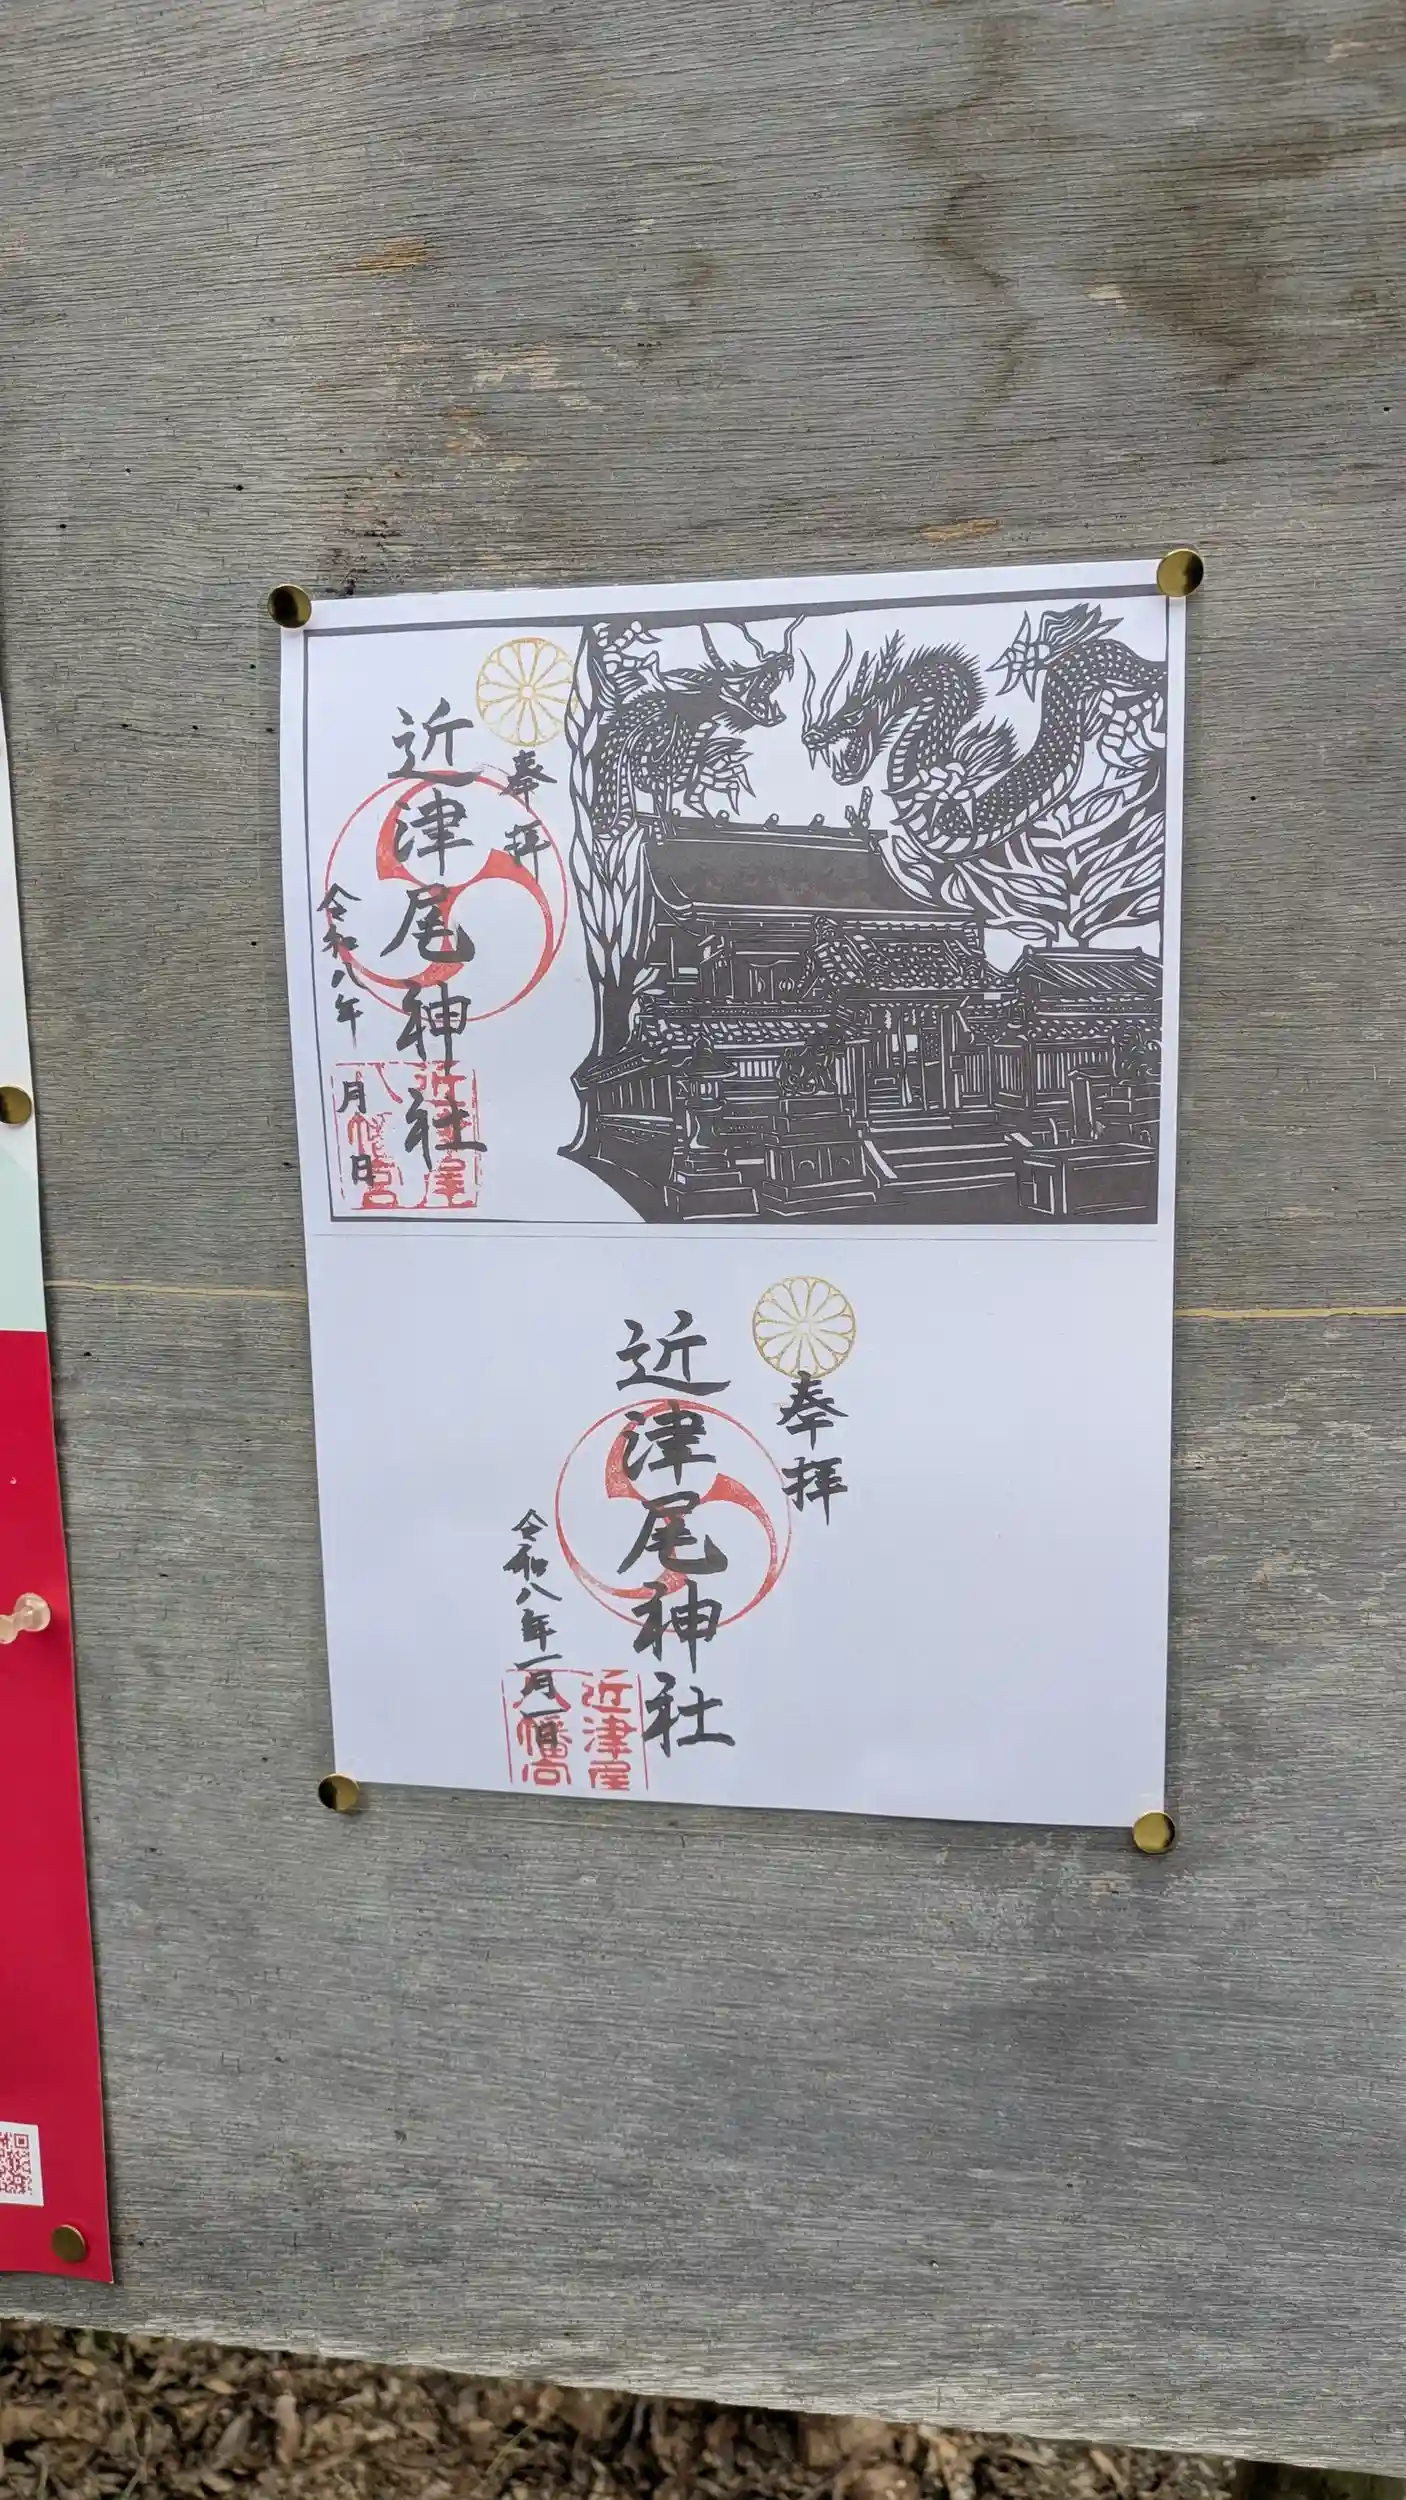 奉拝
近津尾神社
令和八年
月
日
近津尾
八幡宮
奉拝
近津尾神社
令和八年一月一日
近津尾
八幡宮